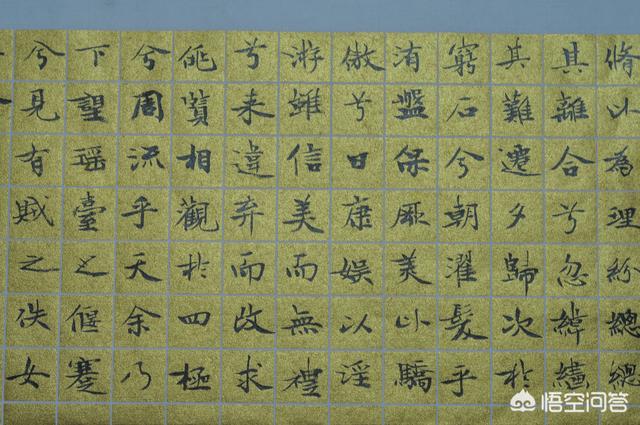 脩以為理紛總總
其離合兮忽緯繣
其難遷夕歸次於
窮石兮朝濯髮乎
洧盤保厥美以驕
傲兮日康娛以淫
游雖信美而無禮
兮来違弃而改求
覽相觀於四極
兮周流乎天余乃
下望瑤臺之偃蹇
兮見有娀之佚女
悟空问答